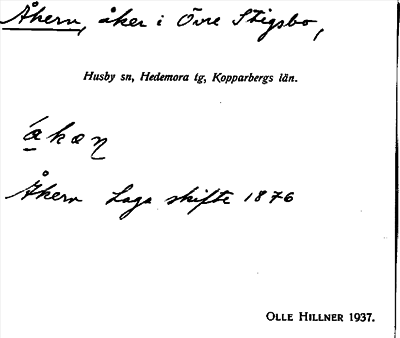 Åkern, åker i Övre Stigsbo,
Husby sn, Hedemora tg, Kopparbergs län.
Åkern Laga skifte 1876
OLLE HILLNER 1937.